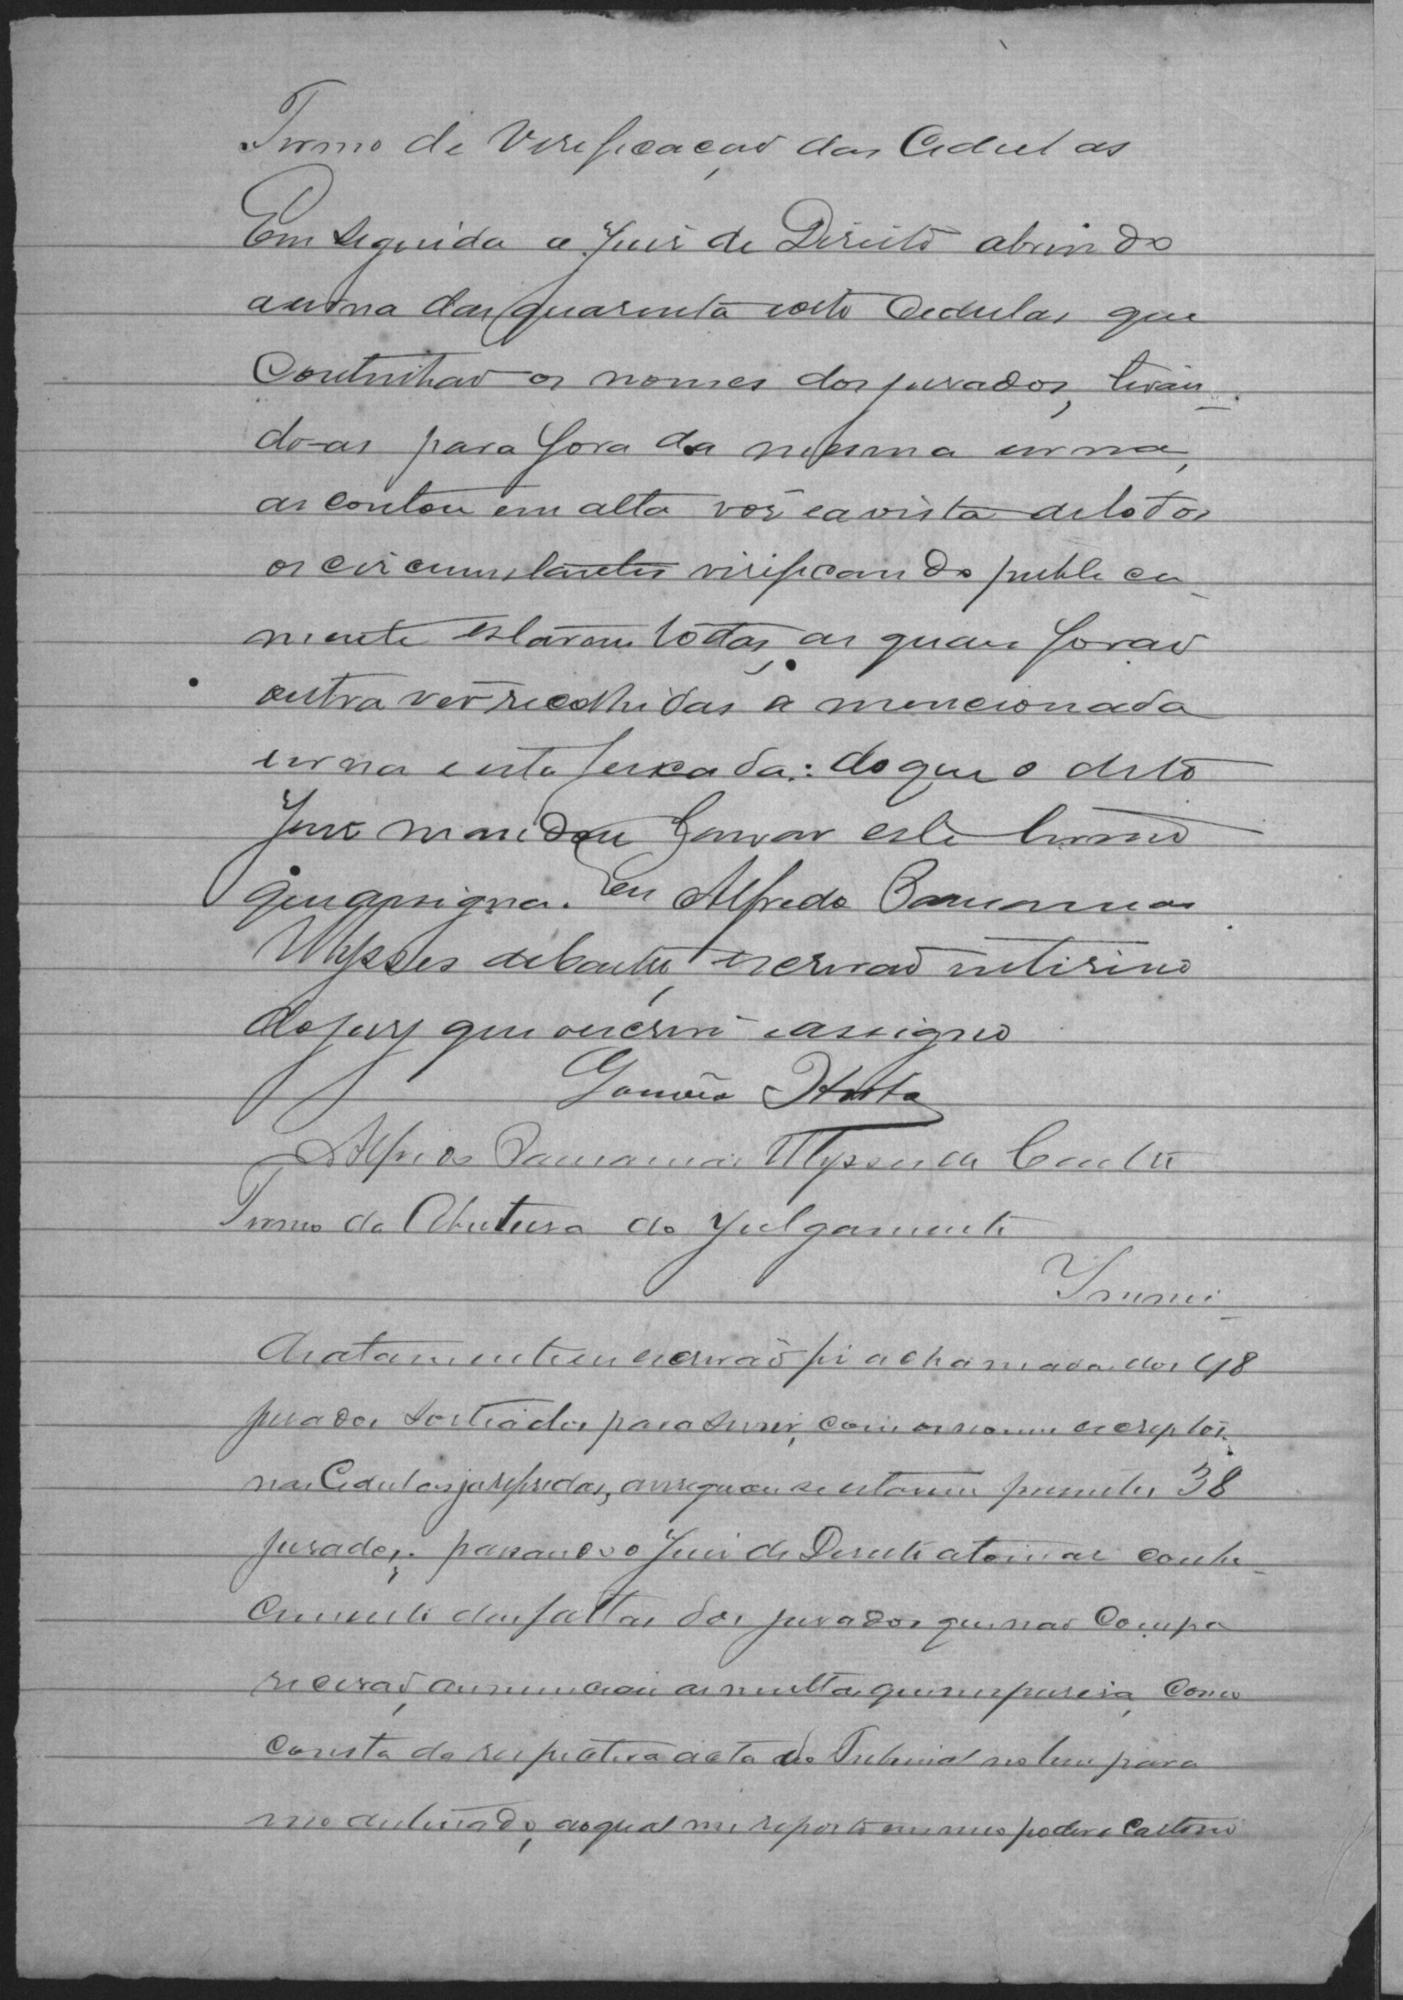 Termo de Verificação das Cedulas
Em seguida o Juis de Direito abrindo
a urna das quarenta e oito Cedulas que
Continhão os nomes dos jurados, tiran-
do-as para fora da mesma urna,
as contou em alta vós e a vista de todos
os circumstantes verificando publica-
mente estarem todas, as quaes forão
outra vez recolhidas á mencionada
urna e esta feixada: do que o dito
Juiz mandou lavrar este termo
que assigna. Eu Alfredo
Ulysses de Castro, escrivão interino
do jury que o escrevi e assigno
Gouvêa Horta
Alfredo Ulysses de Castro
Termo da Abertura do Julgamento
Immi-
diatamente eu escrivão fis a chamada dos 48
jurados sorteados para servir, com os nomes escriptos
nas Cedulas ja referidas, averiguou-se estarem presentes 38
jurados; passando o Juis de Direito a tomar conhe-
cimento das faltas dos jurados que não Compa
recerão, annunciou as multas que impusera, Como
consta da respectiva acta do Tribunal no livro para
isso destinado, ao qual me reporto em meo poder e Cartorio